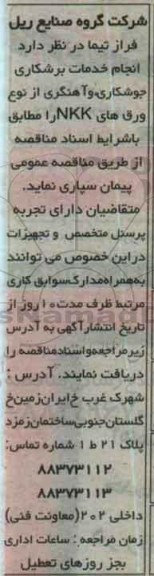 شرکت گروه صنایع ریل
فراز تیما در نظر دارد
انجام خدمات برشکاری
جوشکاری،وآهنگری از نوع
ورق های NKKرا مطابق
باشرایط اسناد مناقصه
از طریق مناقصه عمومی
پیمان سپاری نماید.
متقاضیان دارای تجربه
پرسنل متخصص و تجهیزات
دراین خصوص می توانند
به‌همراه‌مدارک‌سوابق کاری
مرتبط ظرف مدت۱۰ روز از
تاریخ انتشارآگهی به آدرس
زیرمراجعه‌واسنادمناقصه را
دریافت نمایند. آدرس :
شهرک غرب خ‌ایران‌زمین‌خ
گلستان‌جنوبی‌ساختمان‌زمرد
پلاک ۲۱ ط ۱ شماره تماس:
۸۸۳۷۳۱۱۲
۸۸۳۷۳۱۱۳
داخلی ۲۰۲(معاونت فنی)
زمان مراجعه : ساعات اداری
بجز روزهای تعطیل